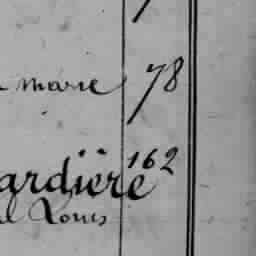 marie 78
ardière 162
Louis